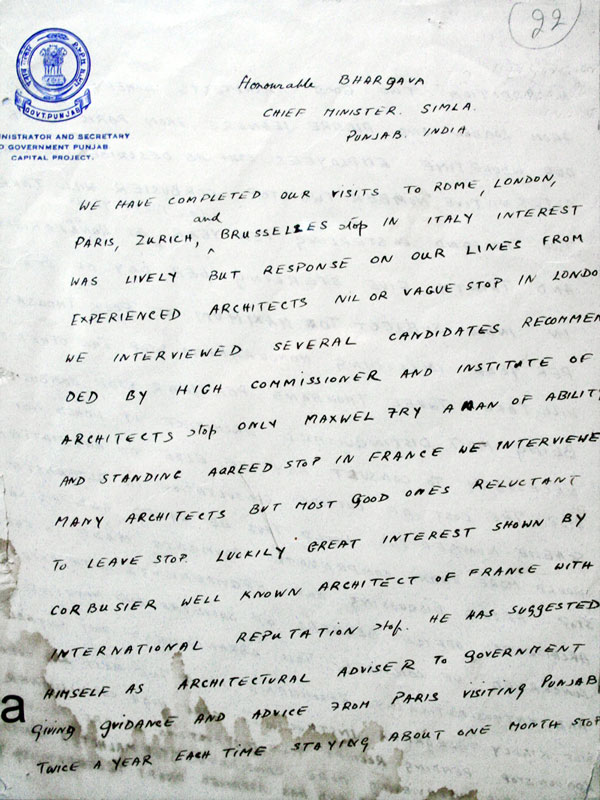 22
GOVT. PUNJAB
NISTRATOR AND SECRETARY
O GOVERNMENT PUNJAB
CAPITAL PROJECT.
Honourable BHARGAVA
CHIEF MINISTER. SIMLA.
PUNJAB. INDIA
WE HAVE COMPLETED OUR VISITS TO ROME, LONDON,
and
PARIS, ZURICH, ^ BRUSSELLES stop IN ITALY INTEREST
WAS LIVELY BUT RESPONSE ON OUR LINES FROM
EXPERIENCED ARCHITECTS NIL OR VAGUE STOP IN LONDO
WE INTERVIEWED SEVERAL CANDIDATES RECOMMEN
DED BY HIGH COMMISSIONER AND INSTITUTE OF
ARCHITECTS stop ONLY MAXWEL FRY A MAN OF ABILITY
AND STANDING AGREED STOP IN FRANCE WE INTERVIEWE
MANY ARCHITECTS BUT MOST GOOD ONES RELUCTANT
TO LEAVE STOP. LUCKILY GREAT INTEREST SHOWN BY
CORBUSIER WELL KNOWN ARCHITECT OF FRANCE WITH
INTERNATIONAL REPUTATION stop. HE HAS SUGGESTED
HIMSELF AS ARCHITECTURAL ADVISER TO GOVERNMENT
a
GIVING GUIDANCE AND ADVICE FROM PARIS VISITING PUNJAB
TWICE A YEAR EACH TIME STAYING ABOUT ONE MONTH STOP